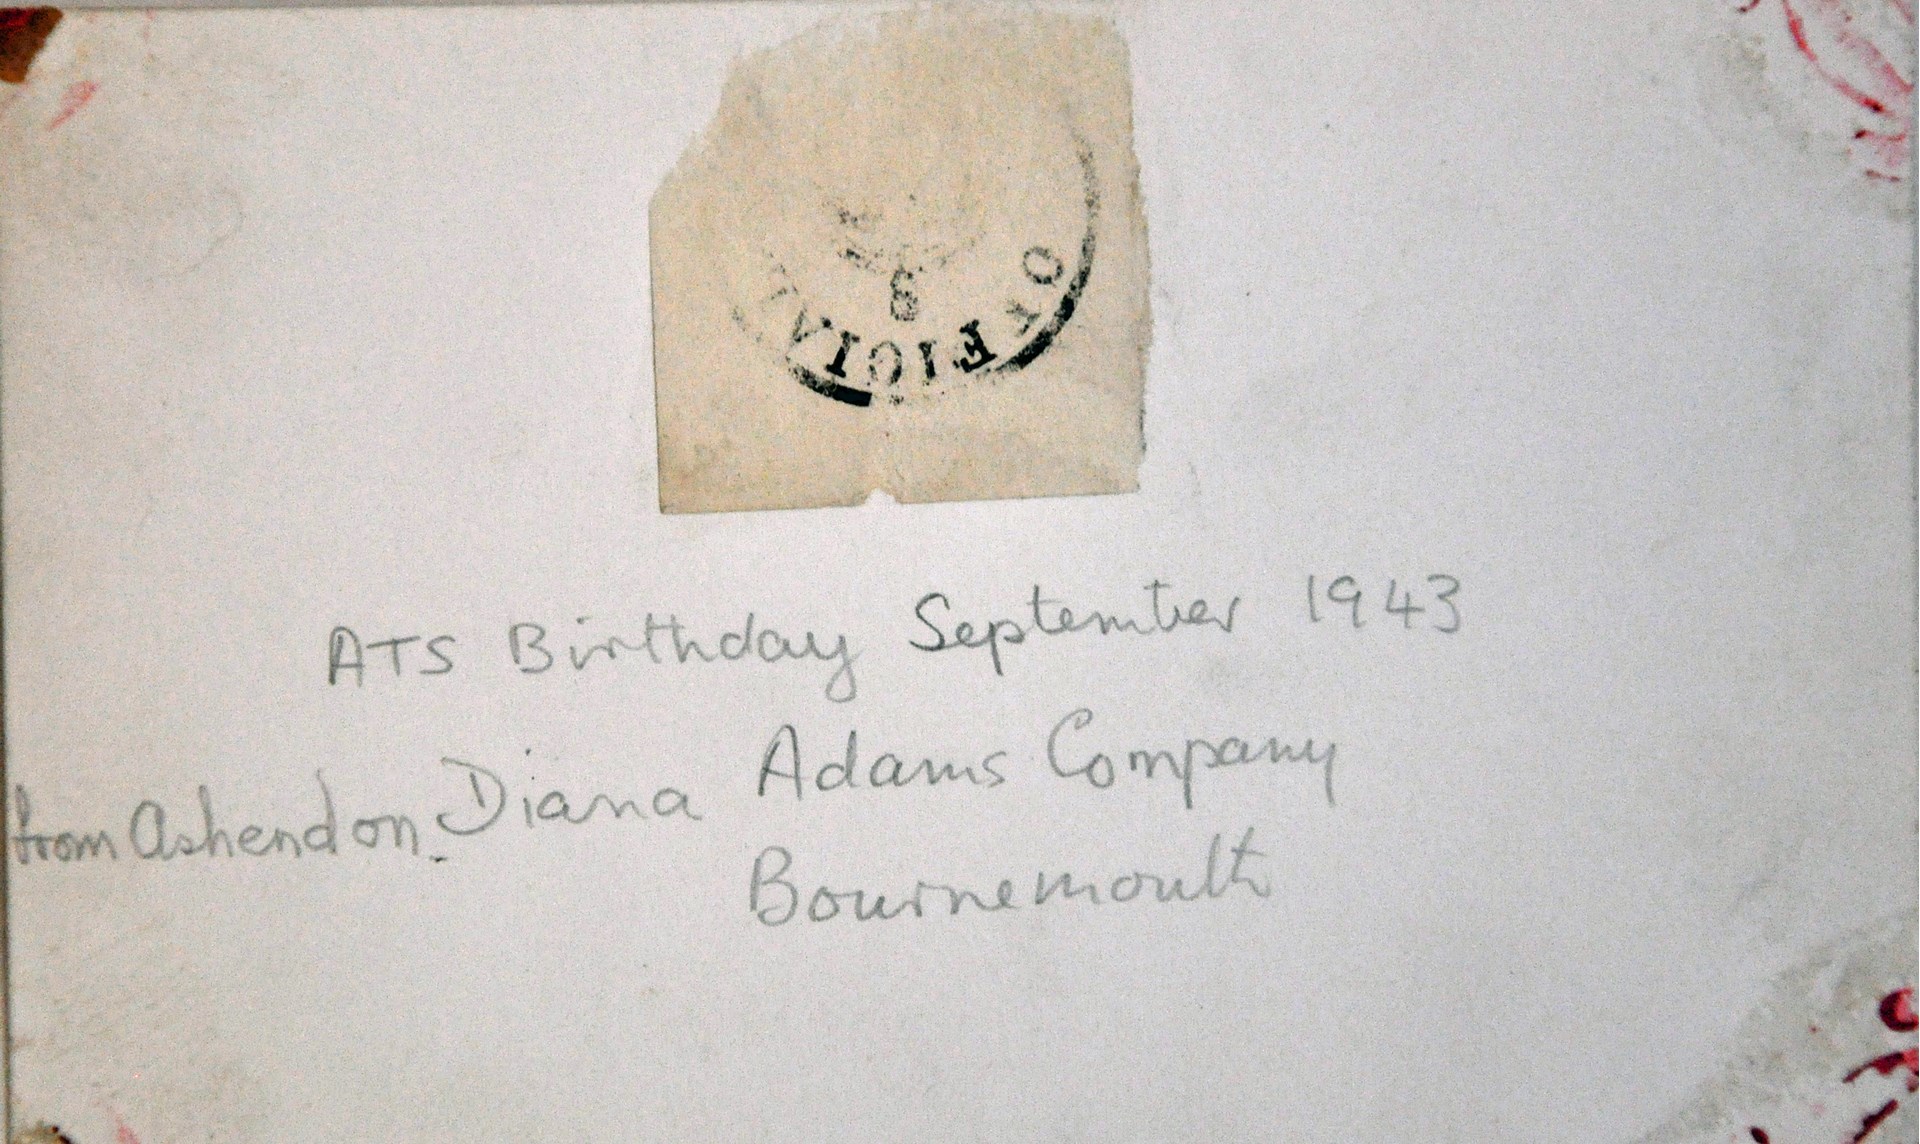 OFFICIAL
8
ATS Birthday September 1943
Adams Company
from Ashendon. Diana
Bournemouth